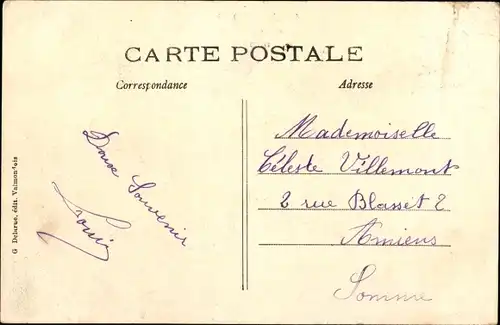 CARTE POSTALE
Correspondance
Adresse
Doux Souvenir
Louis
Mademoiselle
Céleste Villemont
2 rue Blasset 2
Amiens
Somme
G Delarue, édit. Valmondois